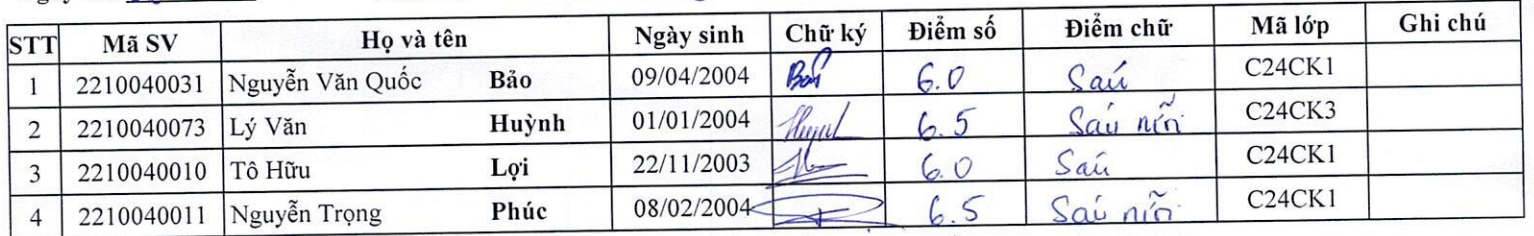 STT Mã SV Họ và tên Ngày sinh Chữ ký Điểm số Điểm chữ Mã lớp Ghi chú
1 2210040031 Nguyễn Văn Quốc Bảo 09/04/2004 Bảo 6.0 Sáu C24CK1
2 2210040073 Lý Văn Huỳnh 01/01/2004 6.5 Sáu rưỡi C24CK3
3 2210040010 Tô Hữu Lợi 22/11/2003 6.0 Sáu C24CK1
4 2210040011 Nguyễn Trọng Phúc 08/02/2004 6.5 Sáu rưỡi C24CK1